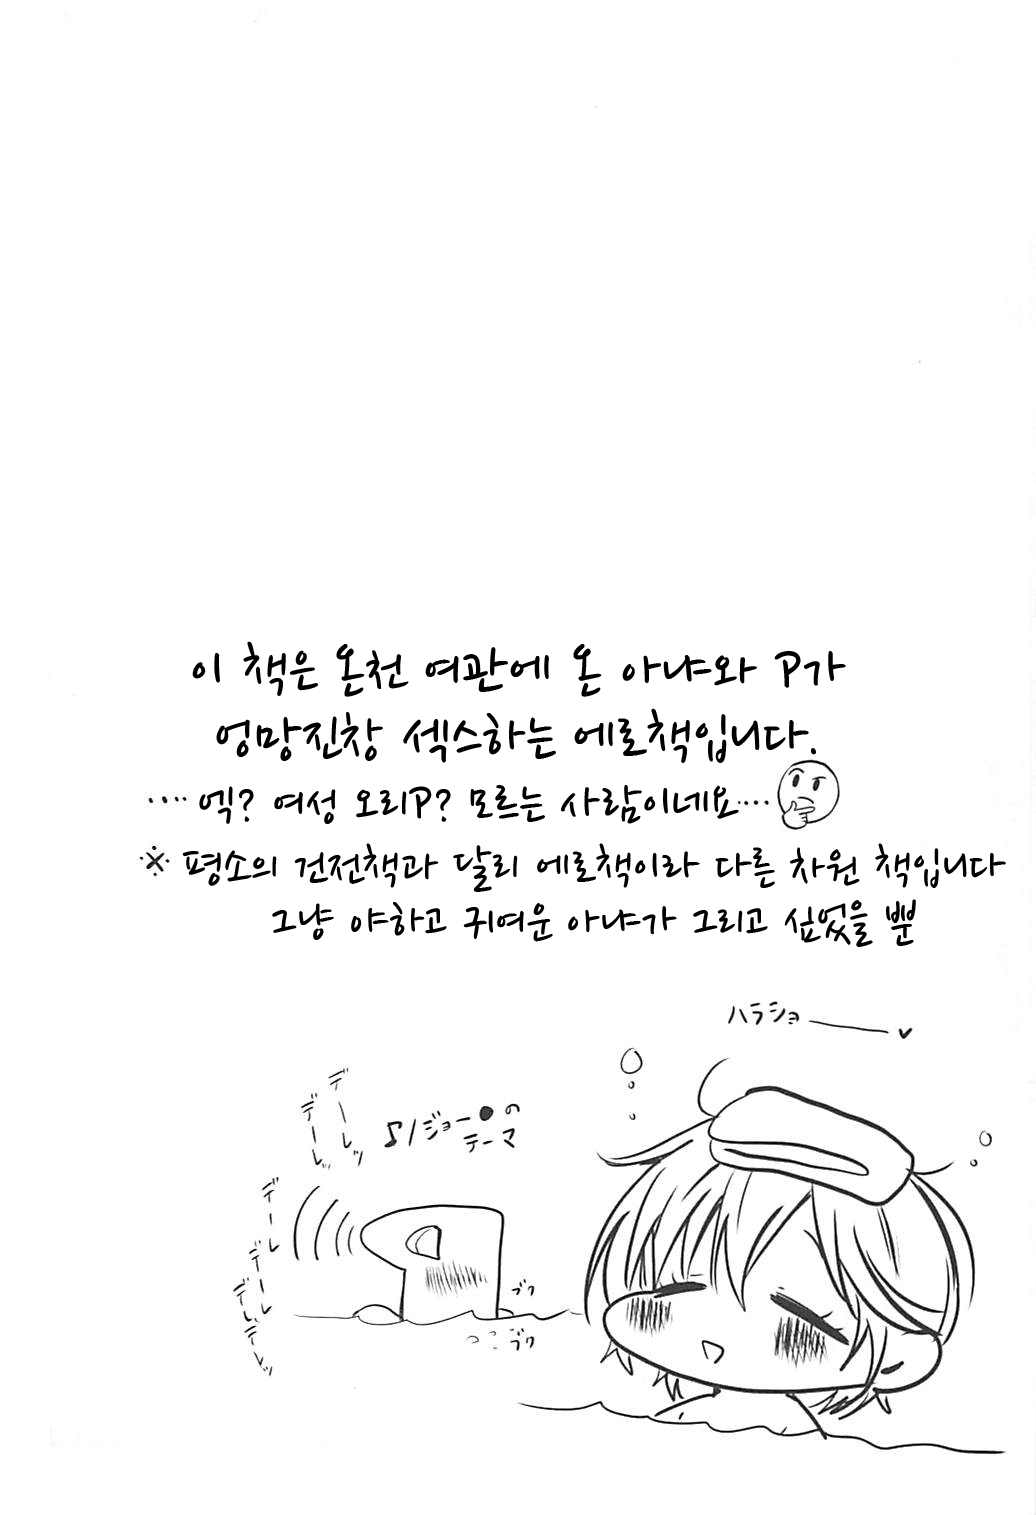 이 책은 온천 여관에 온 아냐와 P가
엉망진창 섹스하는 에로책입니다.
‥‥엑? 여성 오리P? 모르는 사람이네요‥‥
※ 평소의 건전책과 달리 에로책이라 다른 차원 책입니다
그냥 야하고 귀여운 아냐가 그리고 싶었을 뿐
ハラショ──♥
♪/ジョー●の
テーマ
デーレッ
デーレッ
デーレ
デーレ
デレデレッ
ブク
ブク